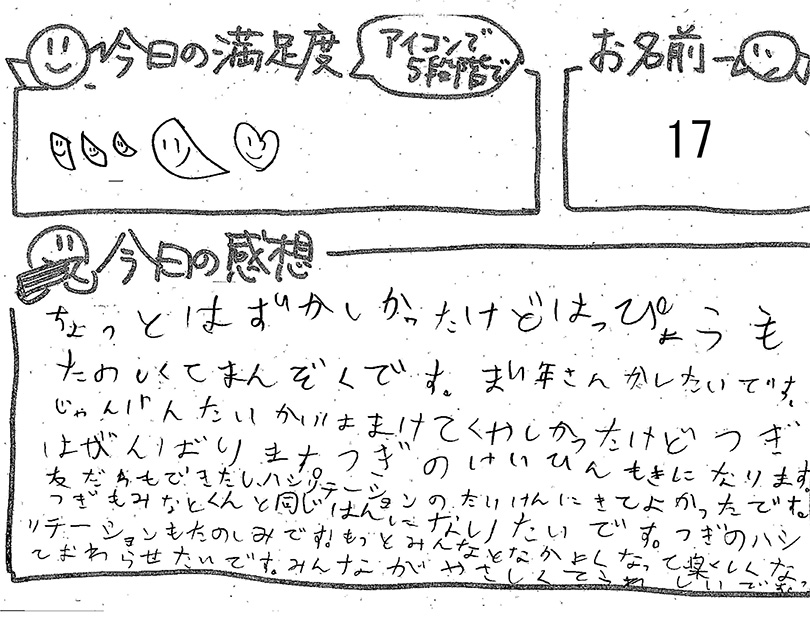 今日の満足度
アイコンで
5段階で
お名前
17
今日の感想
ちょっとはずかしかったけどはっぴょうも
たのしくてまんぞくです。まい年さんかしたいです。
じゃんけんたいかいはまけてくやしかったけどつぎ
はがんばりますつぎのけいひんもきになります。
友だちもできたしハシリテーション
つぎもみなとくんと同じはんになりたいです。
のたいけんにきてよかったです。
つぎのハシリテーションもたのしみです!もっとみんなとなかよくなって楽しくなっ
ておわらせたいです。みんながやさしくてうれしいです